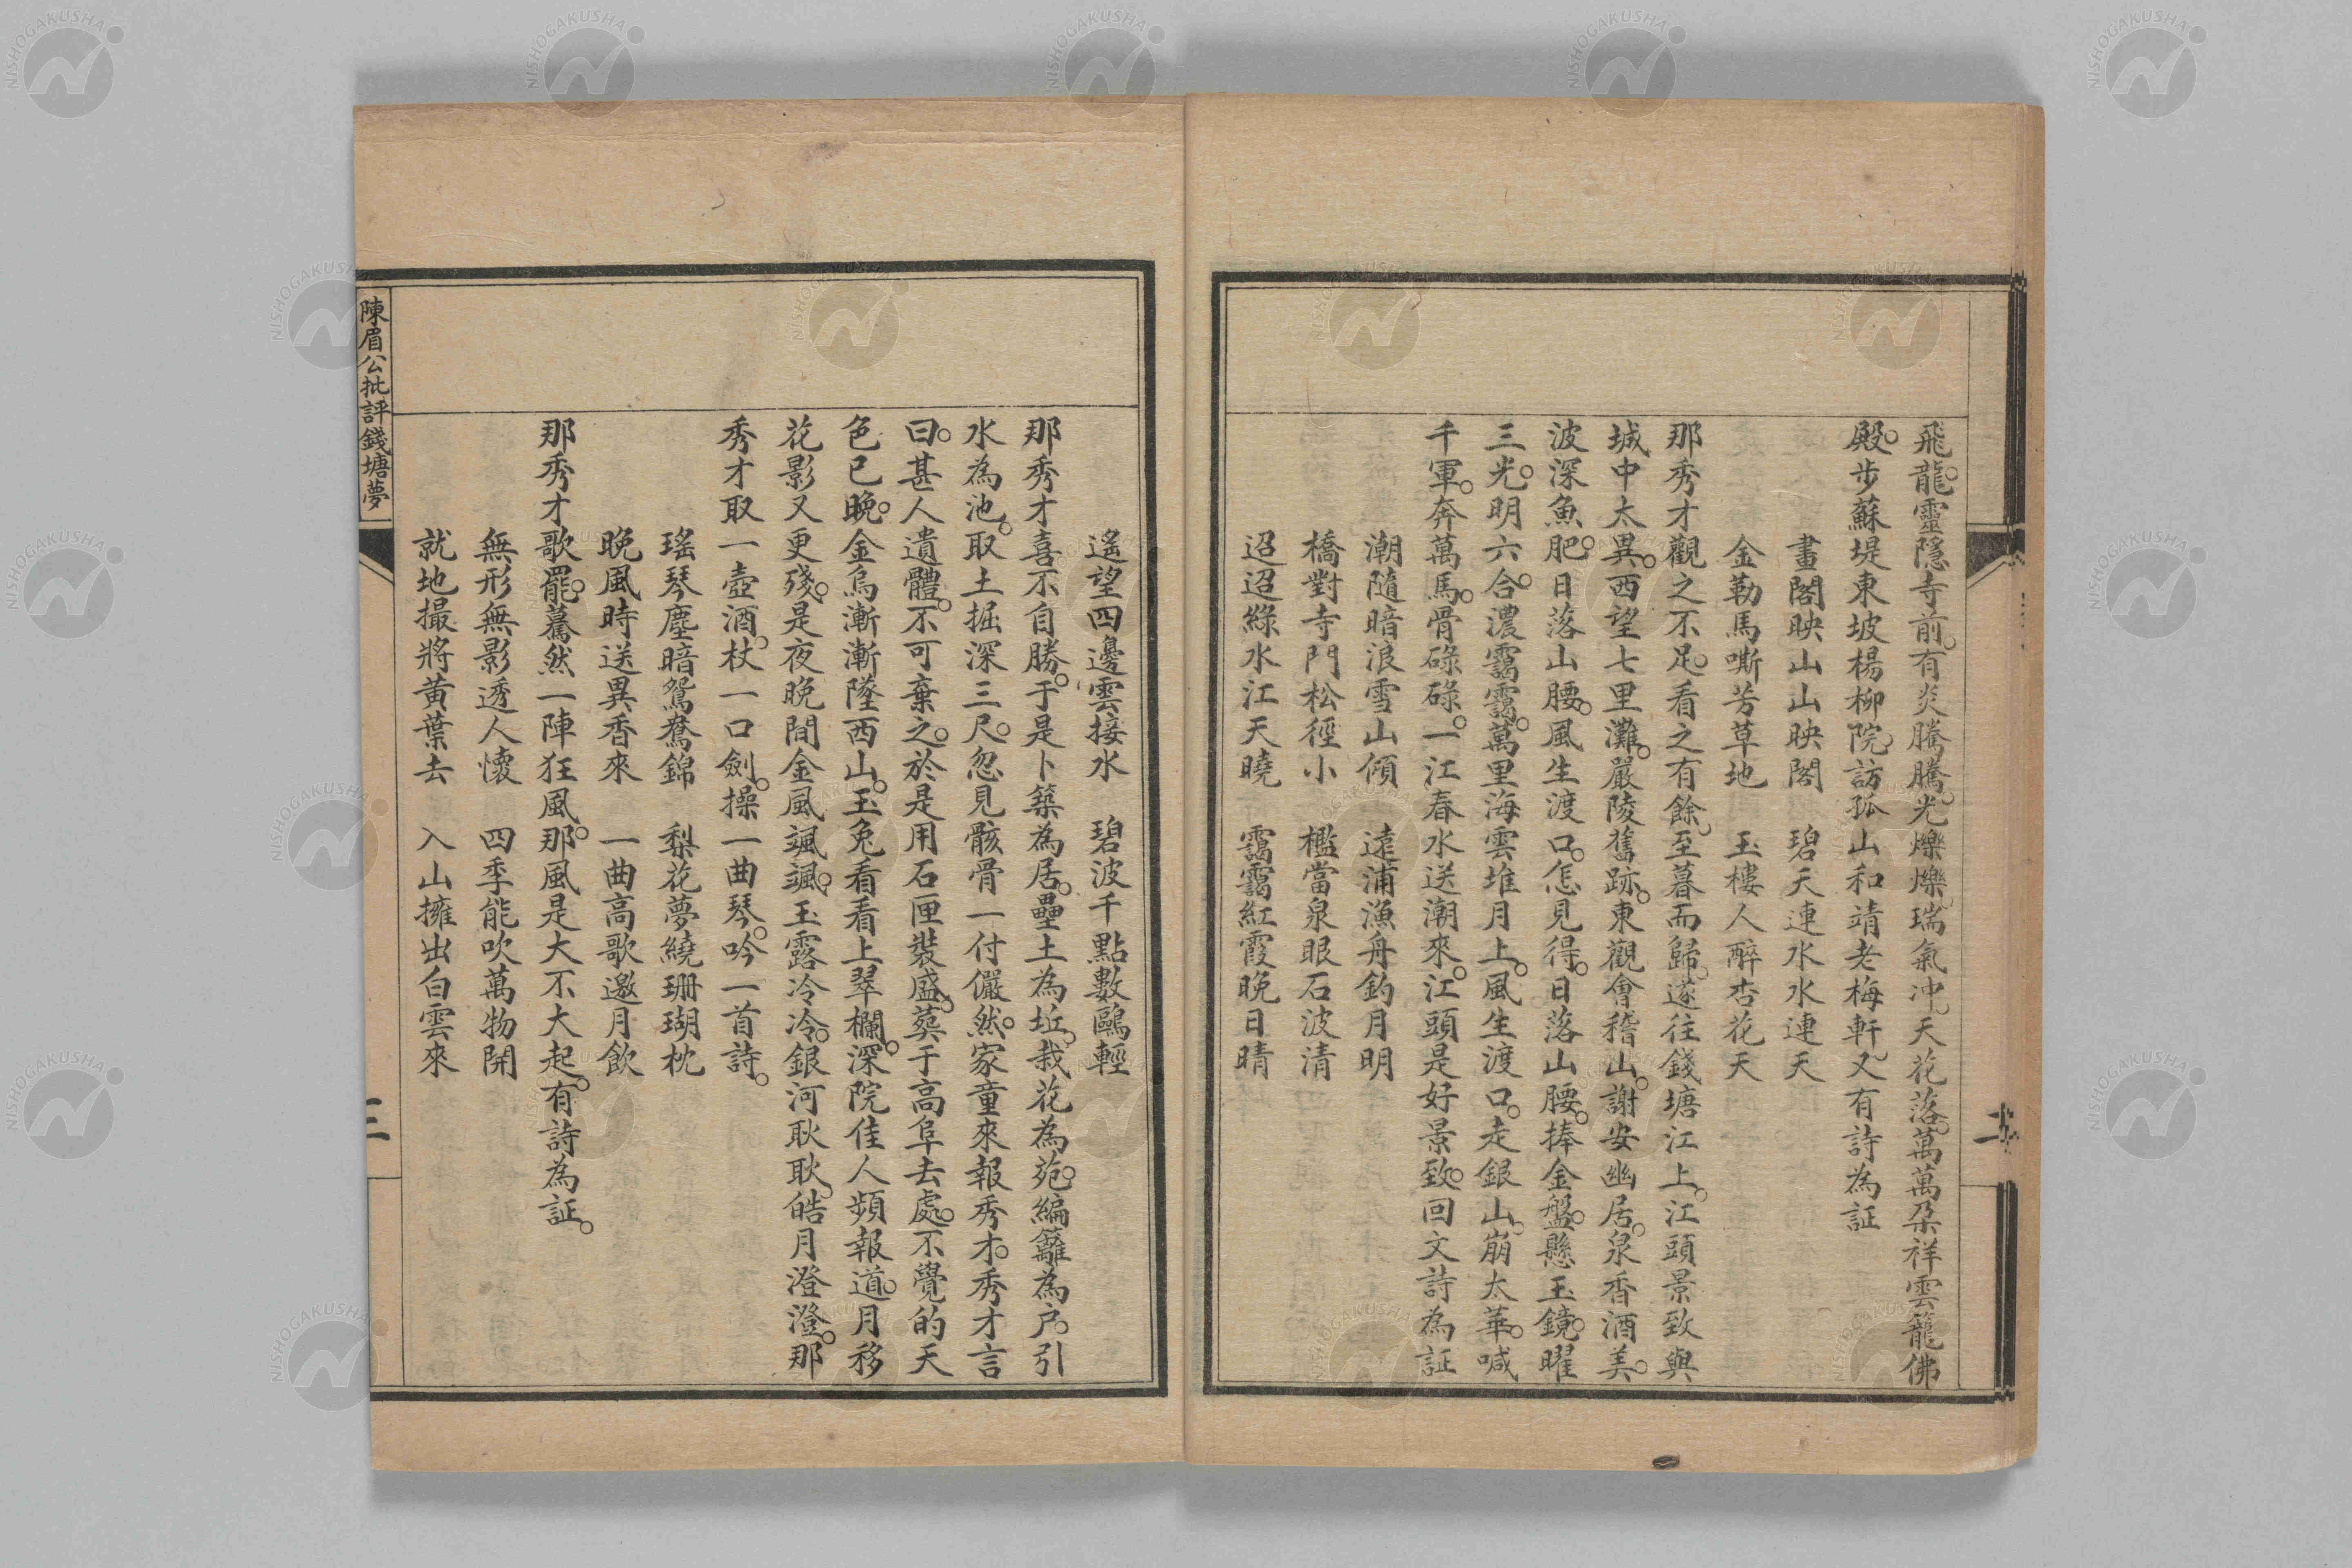 飛龍。靈隱寺前。有炎騰騰。光爍爍。瑞氣冲。天花落。萬萬朶祥雲籠佛
殿。步蘇堤東坡楊柳院。訪孤山和靖老梅軒。又有詩為証
畫閣映山山映閣　碧天連水水連天
金勒馬嘶芳草地　玉樓人醉杏花天
那秀才觀之不足。看之有餘。至暮而歸。遂往錢塘江上。江頭景致與
城中太異。西望七里灘。嚴陵舊跡。東觀會稽山。謝安幽居。泉香酒美。
波深魚肥。日落山腰。風生渡口。怎見得。日落山腰。捧金盤。懸玉鏡。曜
三光。明六合。濃靄靄。萬里海雲堆月上。風生渡口。走銀山。崩太華。喊
千軍。奔萬馬。骨碌碌。一江春水送潮來。江頭是好景致。回文詩為証
潮隨暗浪雪山傾　遠浦漁舟釣月明
橋對寺門松徑小　檻當泉眼石波清
迢迢綠水江天曉　靄靄紅霞晚日晴
遙望四邊雲接水　碧波千點數鷗輕
那秀才喜不自勝。于是卜築為居。壘土為坵。栽花為苑。編籬為户。引
水為池。取土掘深三尺。忽見骸骨一付儼然。家童來報秀才。秀才言
曰。甚人遺體。不可棄之。於是用石匣裝盛。葬于高阜去處。不覺的天
色已晚。金烏漸漸墜西山。玉兔看看上翠欄。深院佳人頻報道。月移
花影又更殘。是夜晚間金風颯颯。玉露冷冷。銀河耿耿。皓月澄澄。那
秀才取一壺酒。杖一口劍。操一曲琴。吟一首詩。
瑤琴塵暗鴛鴦錦　梨花夢繞珊瑚枕
晚風時送異香來　一曲高歌邀月飲
那秀才歌罷。驀然一陣狂風。那風是大不大起。有詩為証。
無形無影透人懷　四季能吹萬物開
就地撮將黃葉去　入山擁出白雲來
陳眉公批評錢塘夢
三
NISHOGAKUSHA